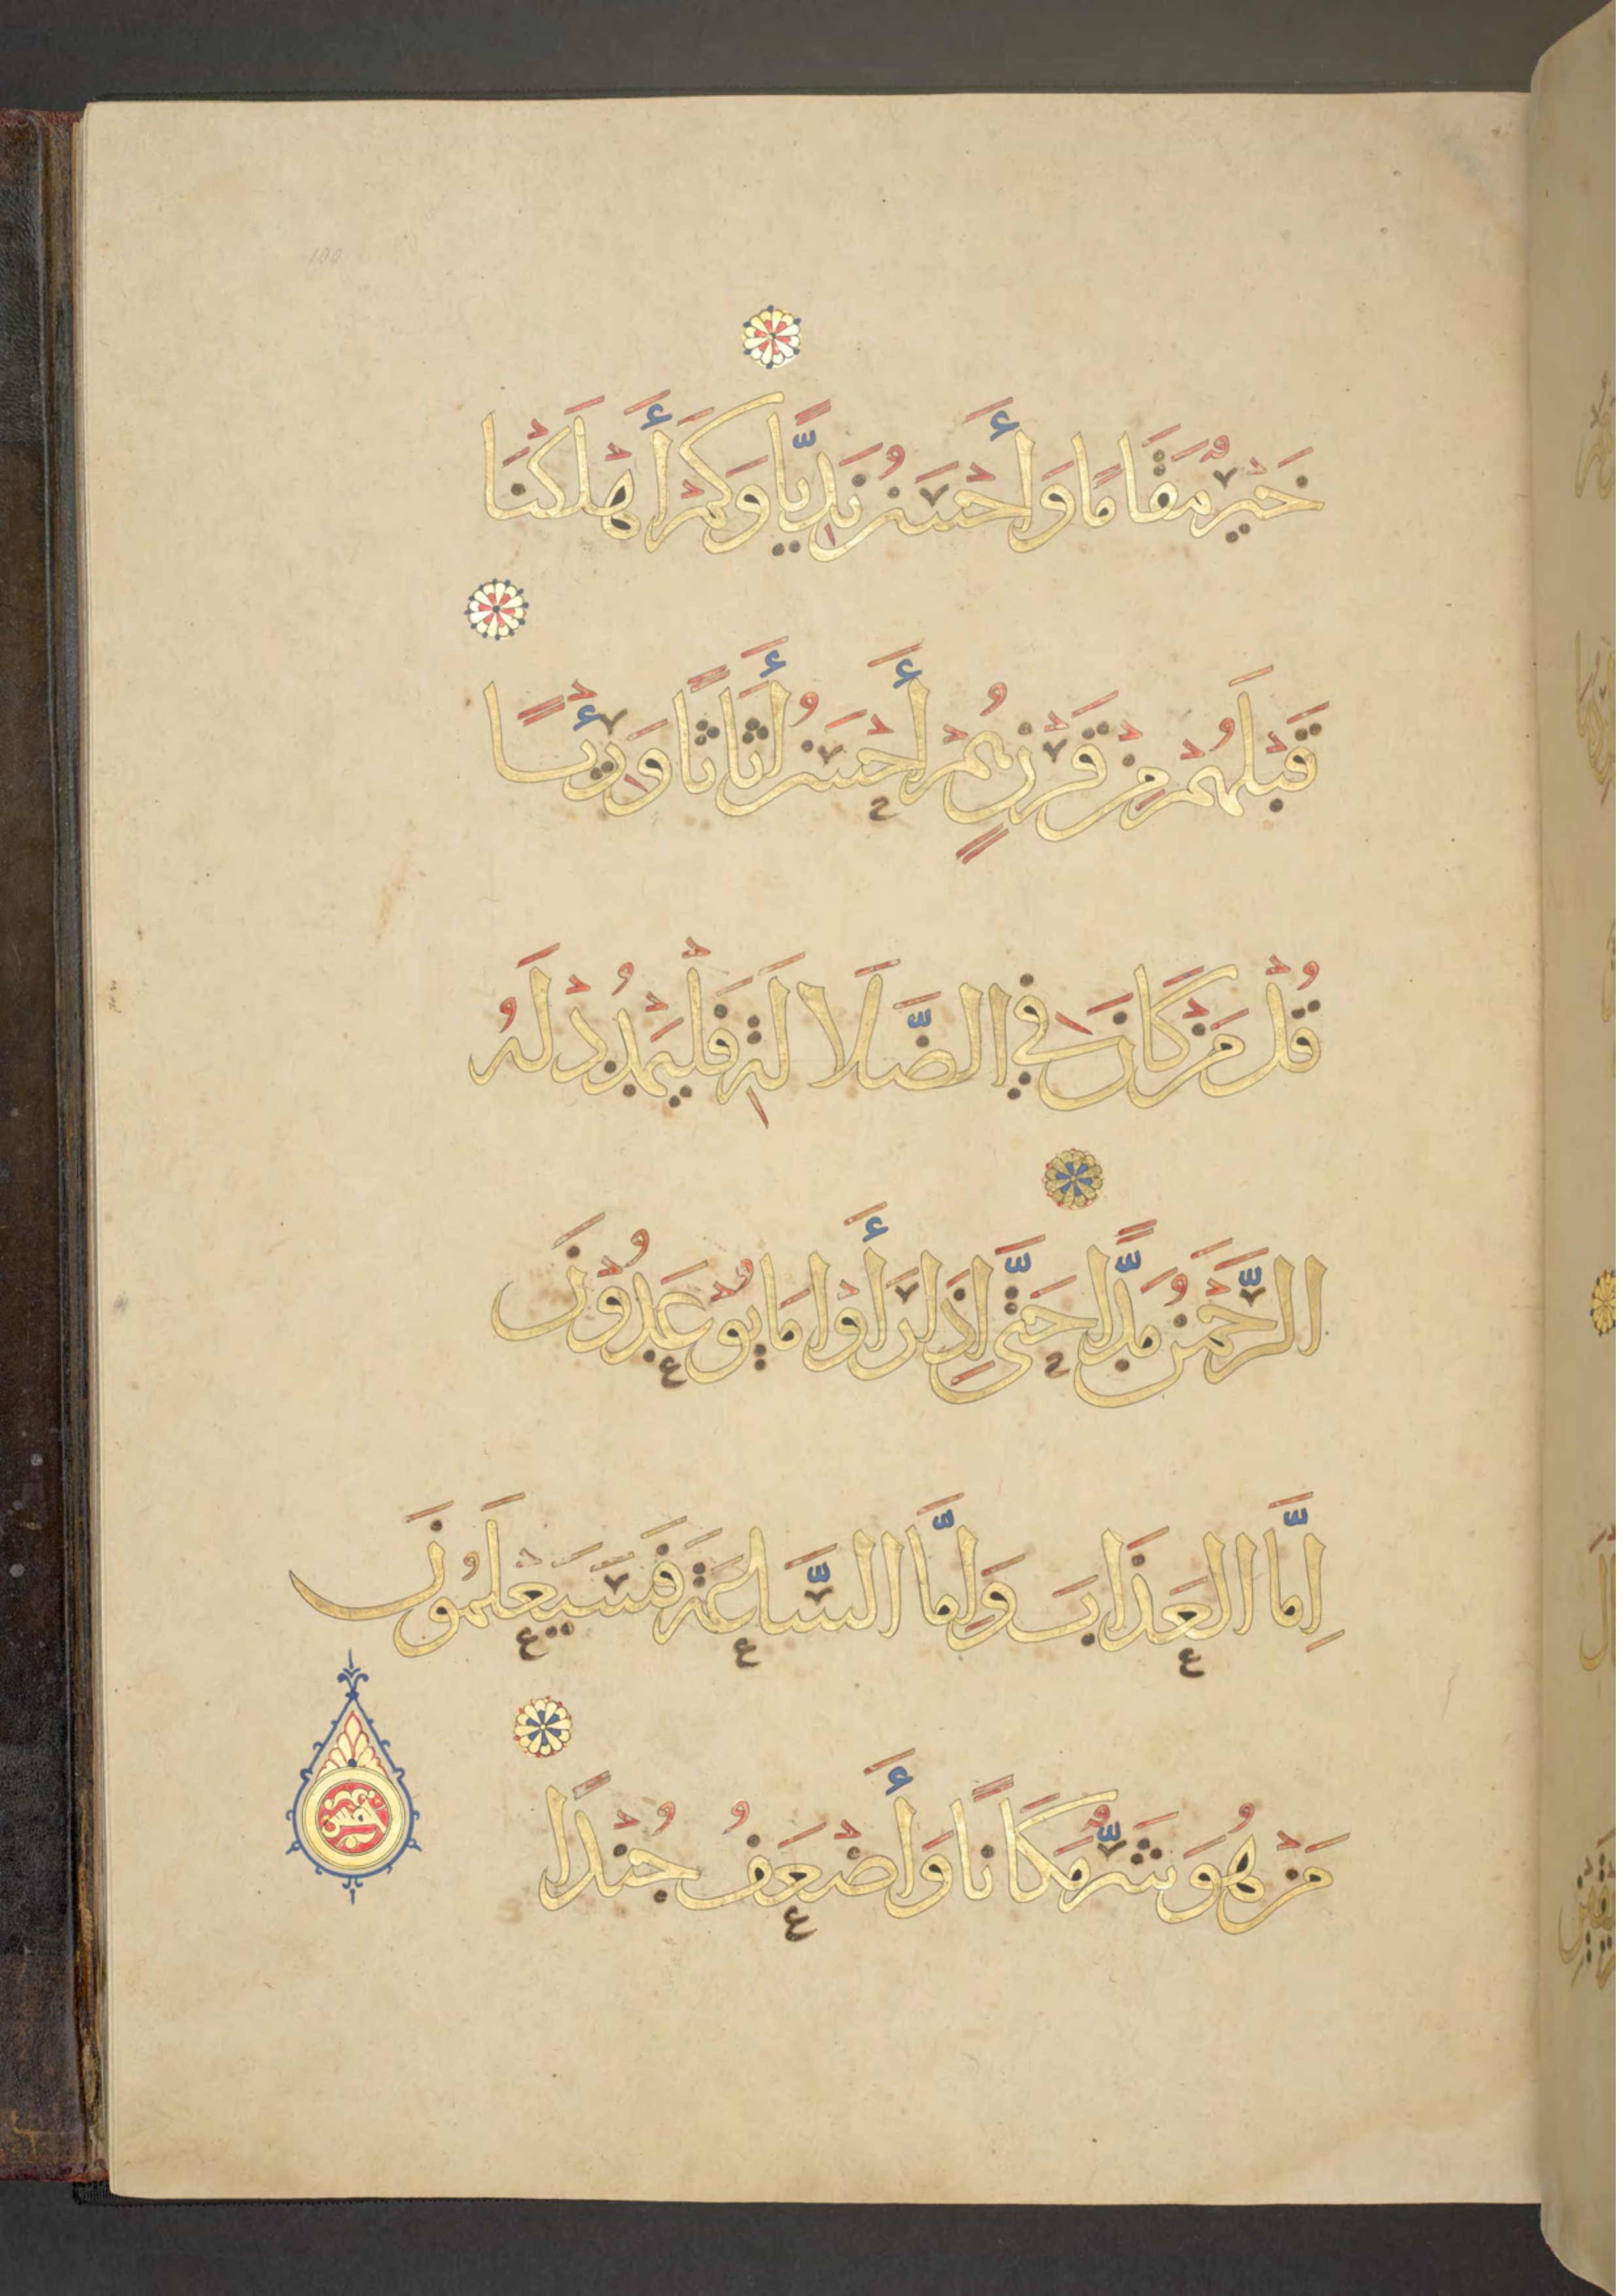 خَيْرٌ مَقَامًا وَأَحْسَنُ نَدِيًّا وَكَمْ أَهْلَكْنَا
قَبْلَهُمْ مِنْ قَرْنٍ هُمْ أَحْسَنُ أَثَاثًا وَرِئْيًا
قُلْ مَنْ كَانَ فِي الضَّلَالَةِ فَلْيَمْدُدْ لَهُ
الرَّحْمَنُ مَدًّا حَتَّى إِذَا رَأَوْا مَا يُوْعَدُوْنَ
إِمَّا الْعَذَابَ وَإِمَّا السَّاعَةَ فَسَيَعْلَمُونَ
مَنْ هُوَ شَرٌّ مَكَانًا وَأَضْعَفُ جُنْدًا
100